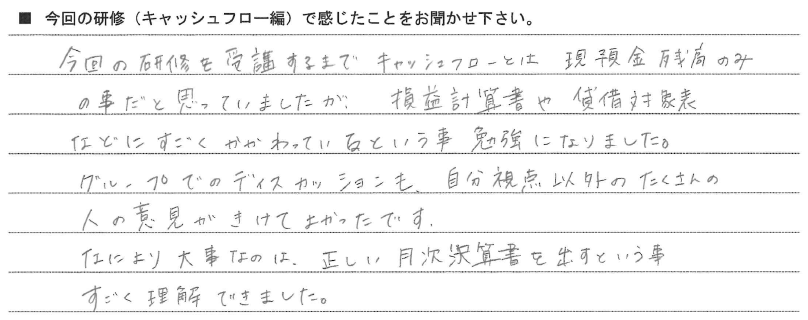 ■ 今回の研修（キャッシュフロー編）で感じたことをお聞かせ下さい。
今回の研修を受講するまで キャッシュフローとは 現預金残高のみ
の事だと思っていましたが、 損益計算書や 貸借対象表
などにすごくかかわっているという事 勉強になりました。
グループでのディスカッションも、自分視点以外のたくさんの
人の意見がきけてよかったです.
なにより大事なのは、正しい月次決算書を出すという事
すごく理解できました。